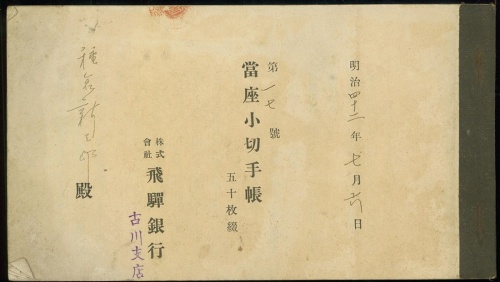 明治四十二年七月六日
第一七號
當座小切手帳
五十枚綴
株式會社飛驒銀行
古川支店
殿